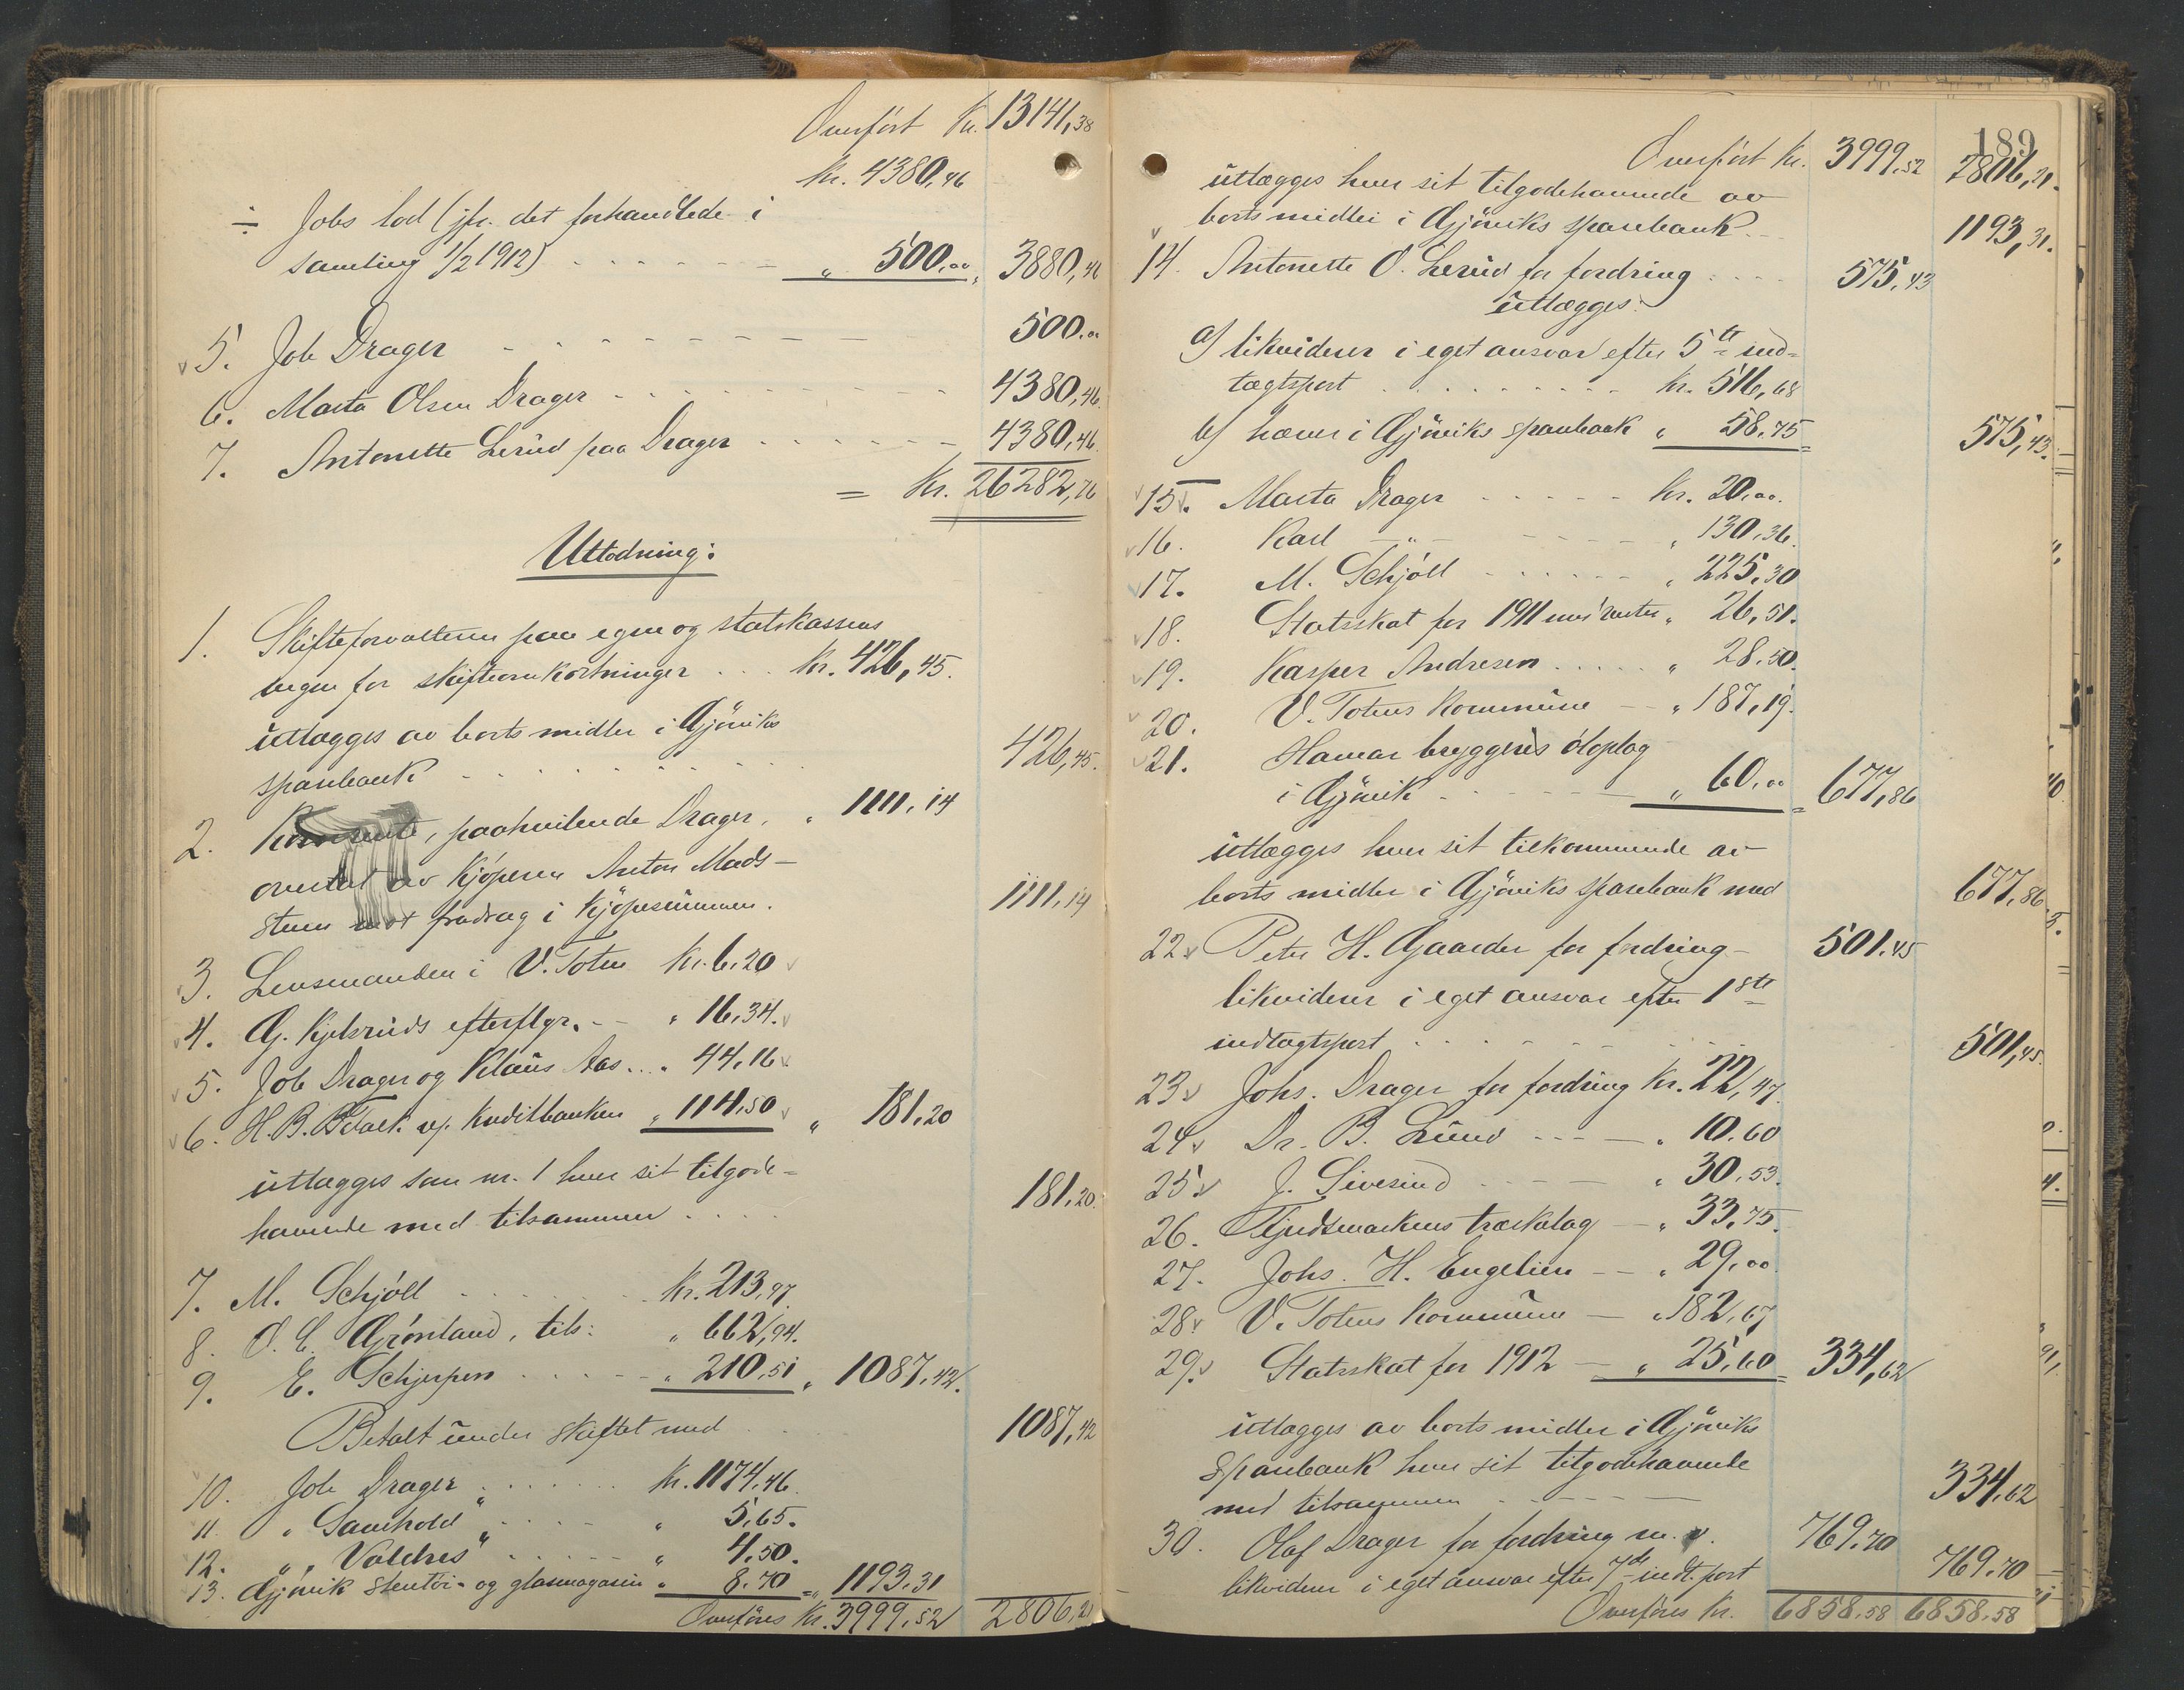 Overført Kr. 13141,38
Kr. 4380,46
÷ Jobs lod (jfr. det forhandlede i
samling 1/2 1912) „ 500,00 „ 3880,46
5. Job Drager 500,00
6. Marta Olsen Drager 4380,46
7. Antonette Lerud paa Drager 4380,46
= Kr. 26282,76
Utlodning:
1. Skifteforvalteren paa egen og statskassens
vegne for skifteomkostninger Kr. 426,45
utlægges av borts midler i Gjøviks
sparebank 426,45
2. paahvilende Drager, „ 1111,14
overtat av kjøperen Anton Mads-
steen mot fradrag i kjøpesummen. 1111,14
3. Lensmanden i V. Toten Kr. 6,20
4. G. Kjelsruds efterflgr. „ 16,34
5. Job Drager og Klaus Aas „ 44,16
6. H. B. Falk v/ Kreditbanken „ 114,50 „ 181,20
utlægges som nr. 1 hver sit tilgode-
havende med tilsammen 181,20
7. M. Schjöll Kr. 213,97
8. O. E. Grønland, tils: „ 662,94
9. E. Schjerpen „ 210,51 „ 1087,42
Betalt under skiftet med 1087,42
10. Job Drager Kr. 1174,46
11. „Samhold" „ 5,65
12. „Valdres" „ 4,50
13. Gjøvik stentøi- og glasmagasin „ 8,70 = „ 1193,31
Overføres Kr. 3999,52 2806,21
189
Overført Kr. 3999,52 2806,21
utlægges hver sit tilgodehavende av
borts midler i Gjøviks sparebank 1193,31
14. Antonette O. Lerud for fordring 575,43
utlægges:
a) likviderer i eget ansvar efter 5te ind-
tægtspost kr. 516,68
b) hæver i Gjøviks sparebank „ 58,75 575,43
15. Marta Drager Kr. 20,00
16. Karl —„— „ 130,36
17. M. Schjöll „ 225,30
18. Statsskat for 1911 med renter „ 26,51
19. Kasper Andresen „ 28,50
20. V. Totens kommune „ 187,19
21. Hamar bryggeris øloplag
i Gjøvik „ 60,00 = 677,86
utlægges hver sit tilkommende av
borts midler i Gjøviks sparebank med 677,86
22. Peter H. Gaarder for fordring 501,45
likviderer i eget ansvar efter 1ste
indtægtspost 501,45
23. Johs. Drager for fordring Kr. 22,47
24. Dr. B. Lund „ 10,60
25. J. Sivesind „ 30,53
26. træskelag „ 33,75
27. Johs. H. Engelien „ 29,00
28. V. Totens kommune „ 182,67
29. Statsskat for 1912 „ 25,60 = 334,62
utlægges av borts midler i Gjøviks
sparebank hver sit tilgodehavende
med tilsammen 334,62
30. Olaf Drager for fordring m. v. 769,70
likviderer i eget ansvar efter 7de indt. post 769,70
Overføres Kr. 6858,58 6858,58